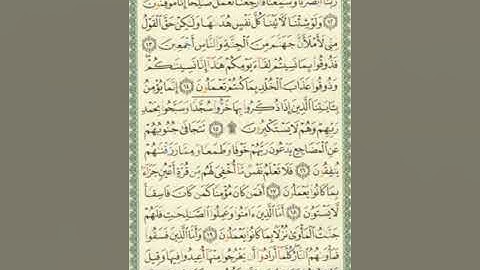 رَبَّنَآ أَبْصَرْنَا وَسَمِعْنَا فَٱرْجِعْنَا نَعْمَلْ صَٰلِحًا إِنَّا مُوقِنُونَ
١٢ وَلَوْ شِئْنَا لَءَاتَيْنَا كُلَّ نَفْسٍ هُدَىٰهَا وَلَٰكِنْ حَقَّ ٱلْقَوْلُ
مِنِّى لَأَمْلَأَنَّ جَهَنَّمَ مِنَ ٱلْجِنَّةِ وَٱلنَّاسِ أَجْمَعِينَ ١٣
فَذُوقُوا۟ بِمَا نَسِيتُمْ لِقَآءَ يَوْمِكُمْ هَٰذَآ إِنَّا نَسِينَٰكُمْ
وَذُوقُوا۟ عَذَابَ ٱلْخُلْدِ بِمَا كُنتُمْ تَعْمَلُونَ ١٤ إِنَّمَا يُؤْمِنُ
بِـَٔايَٰتِنَا ٱلَّذِينَ إِذَا ذُكِّرُوا۟ بِهَا خَرُّوا۟ سُجَّدًا وَسَبَّحُوا۟ بِحَمْدِ
رَبِّهِمْ وَهُمْ لَا يَسْتَكْبِرُونَ ۩ ١٥ تَتَجَافَىٰ جُنُوبُهُمْ
عَنِ ٱلْمَضَاجِعِ يَدْعُونَ رَبَّهُمْ خَوْفًا وَطَمَعًا وَمِمَّا رَزَقْنَٰهُمْ
يُنفِقُونَ ١٦ فَلَا تَعْلَمُ نَفْسٌ مَّآ أُخْفِىَ لَهُم مِّن قُرَّةِ أَعْيُنٍ جَزَآءًۢ
بِمَا كَانُوا۟ يَعْمَلُونَ ١٧ أَفَمَن كَانَ مُؤْمِنًا كَمَن كَانَ فَاسِقًا
لَّا يَسْتَوُۥنَ ١٨ أَمَّا ٱلَّذِينَ ءَامَنُوا۟ وَعَمِلُوا۟ ٱلصَّٰلِحَٰتِ فَلَهُمْ
جَنَّٰتُ ٱلْمَأْوَىٰ نُزُلًۢا بِمَا كَانُوا۟ يَعْمَلُونَ ١٩ وَأَمَّا ٱلَّذِينَ فَسَقُوا۟
فَمَأْوَىٰهُمُ ٱلنَّارُ كُلَّمَآ أَرَادُوٓا۟ أَن يَخْرُجُوا۟ مِنْهَآ أُعِيدُوا۟ فِيهَا وَقِيلَ